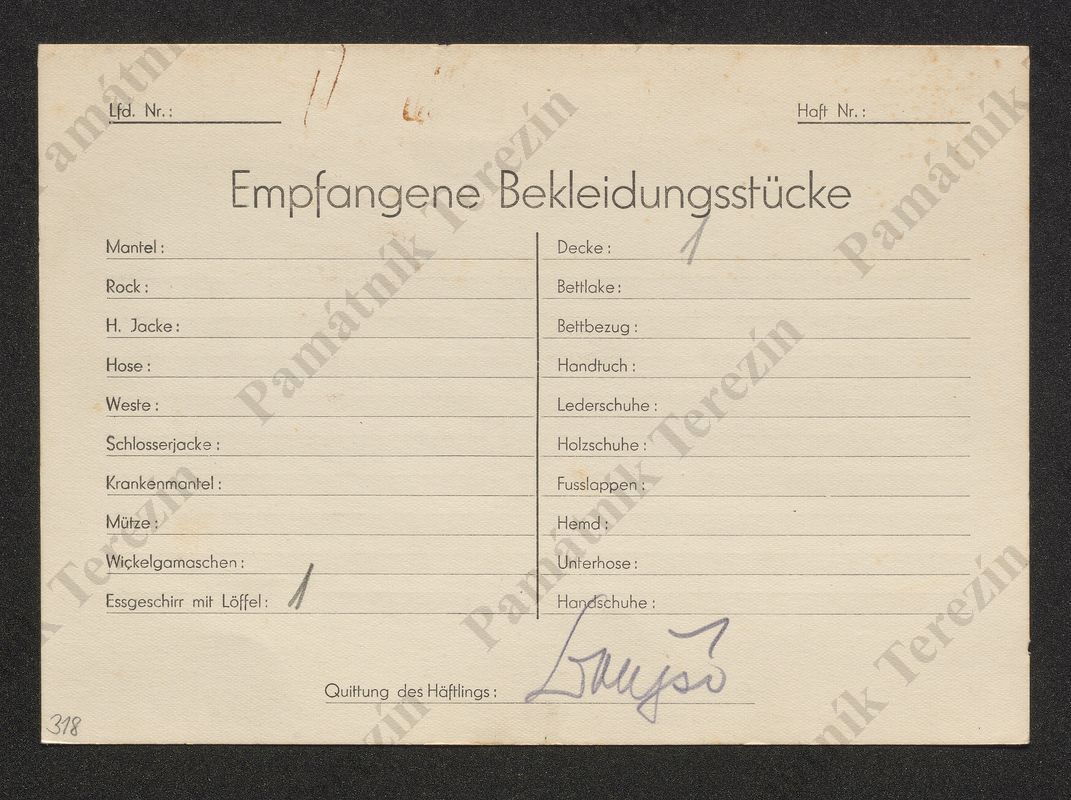 Lfd. Nr.:
Haft Nr.:
Empfangene Bekleidungsstücke
Mantel:
Rock:
H. Jacke:
Hose:
Weste:
Schlosserjacke:
Krankenmantel:
Mütze:
Wickelgamaschen:
Essgeschirr mit Löffel: 1
Decke: 1
Bettlake:
Bettbezug:
Handtuch:
Lederschuhe:
Holzschuhe:
Fusslappen:
Hemd:
Unterhose:
Handschuhe:
Quittung des Häftlings:
318
Památník Terezín
Památník Terezín
Památník Terezín
Památník Terezín